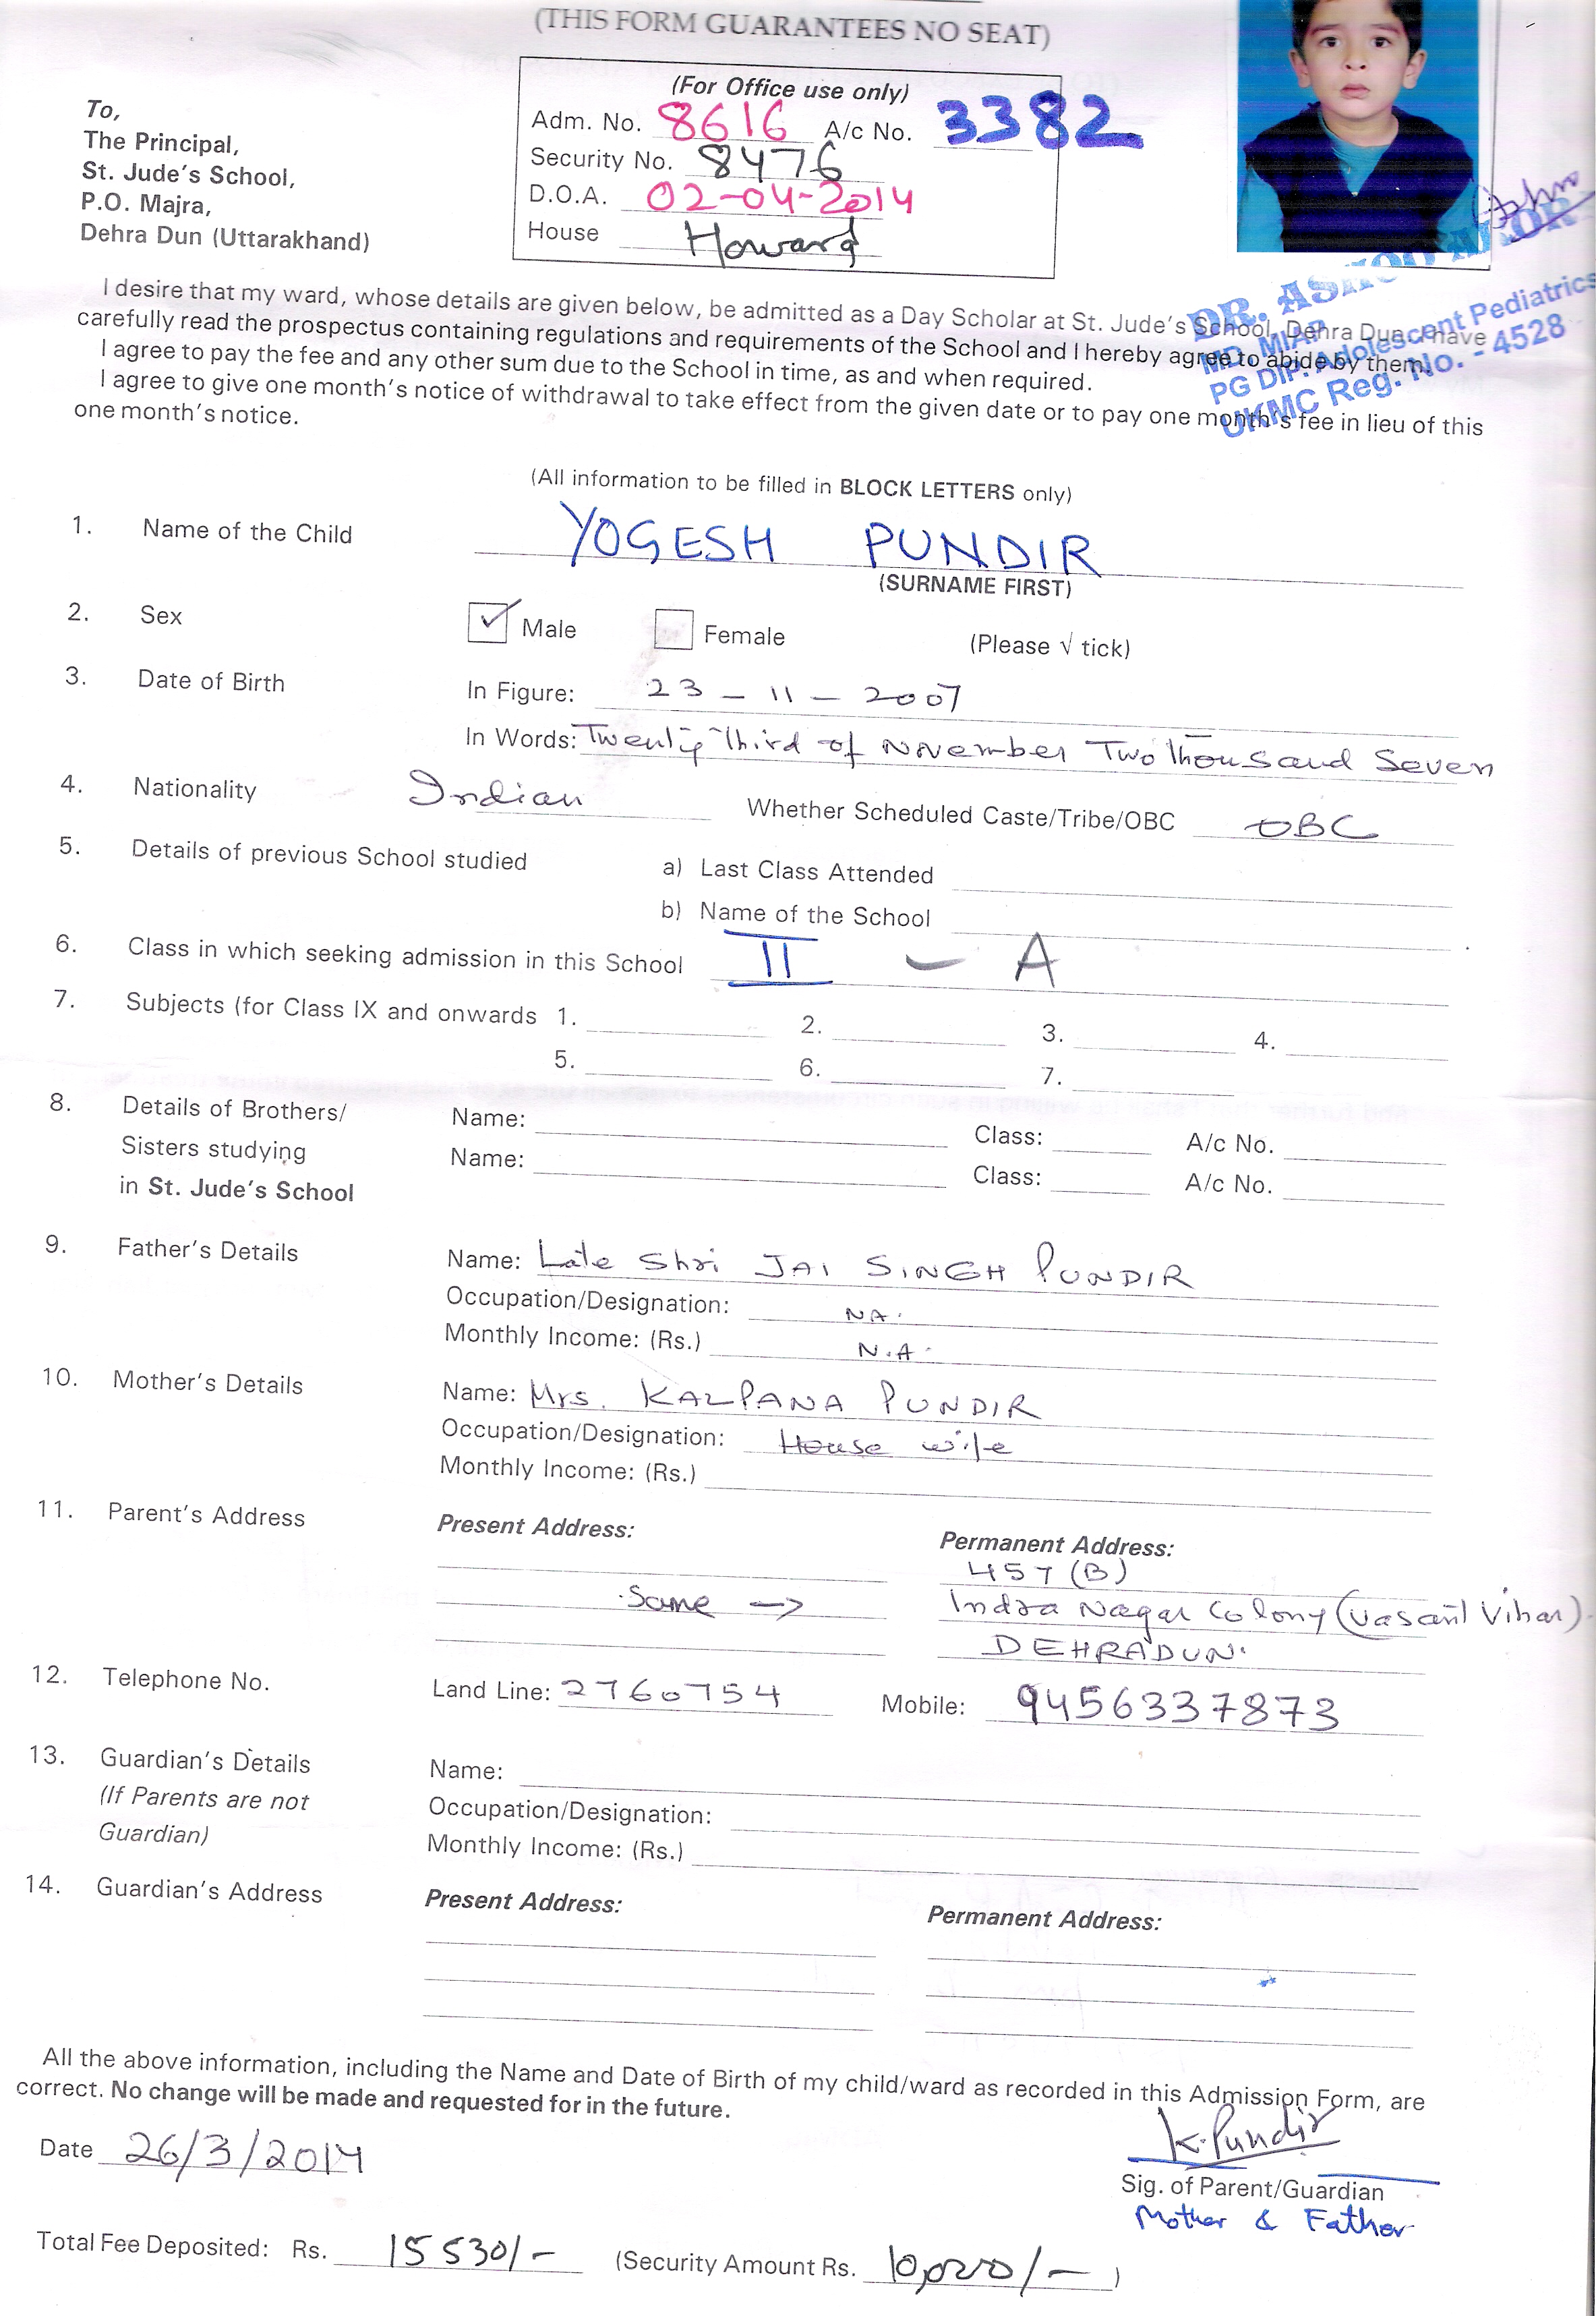 (THIS FORM GUARANTEES NO SEAT)
To,
The Principal,
St. Jude's School,
P.O. Majra,
Dehra Dun (Uttarakhand)
(For Office use only)
Adm. No. 8616 A/c No. 3382
Security No. 8476
D.O.A. 02-04-2014
House Howard
DR. ASHOO
MD, MIAP
PG DIP. Adolescent Pediatrics
UKMC Reg. No. - 4528
I desire that my ward, whose details are given below, be admitted as a Day Scholar at St. Jude's School, Dehra Dun. I have
carefully read the prospectus containing regulations and requirements of the School and I hereby agree to abide by them.
I agree to pay the fee and any other sum due to the School in time, as and when required.
I agree to give one month's notice of withdrawal to take effect from the given date or to pay one month's fee in lieu of this
one month's notice.
(All information to be filled in BLOCK LETTERS only)
1. Name of the Child YOGESH PUNDIR
(SURNAME FIRST)
2. Sex ✓ Male Female (Please √ tick)
3. Date of Birth In Figure: 23 - 11 - 2007
In Words: Twenty Third of November Two Thousand Seven
4. Nationality Indian Whether Scheduled Caste/Tribe/OBC OBC
5. Details of previous School studied a) Last Class Attended
b) Name of the School
6. Class in which seeking admission in this School II - A
7. Subjects (for Class IX and onwards 1. 2. 3. 4.
5. 6. 7.
8. Details of Brothers/ Name: Class: A/c No.
Sisters studying Name: Class: A/c No.
in St. Jude's School
9. Father's Details Name: Late Shri JAI SINGH PUNDIR
Occupation/Designation: NA.
Monthly Income: (Rs.) N.A.
10. Mother's Details Name: Mrs. KALPANA PUNDIR
Occupation/Designation: House wife
Monthly Income: (Rs.)
11. Parent's Address Present Address: Permanent Address:
457 (B)
Same → Indra Nagar Colony (Vasant Vihar).
DEHRADUN.
12. Telephone No. Land Line: 2760754 Mobile: 9456337873
13. Guardian's Details Name:
(If Parents are not Occupation/Designation:
Guardian) Monthly Income: (Rs.)
14. Guardian's Address Present Address: Permanent Address:
All the above information, including the Name and Date of Birth of my child/ward as recorded in this Admission Form, are
correct. No change will be made and requested for in the future.
Date 26/3/2014 K. Pundir
Sig. of Parent/Guardian
Mother & Father
Total Fee Deposited: Rs. 15530/- (Security Amount Rs. 10,000/-)